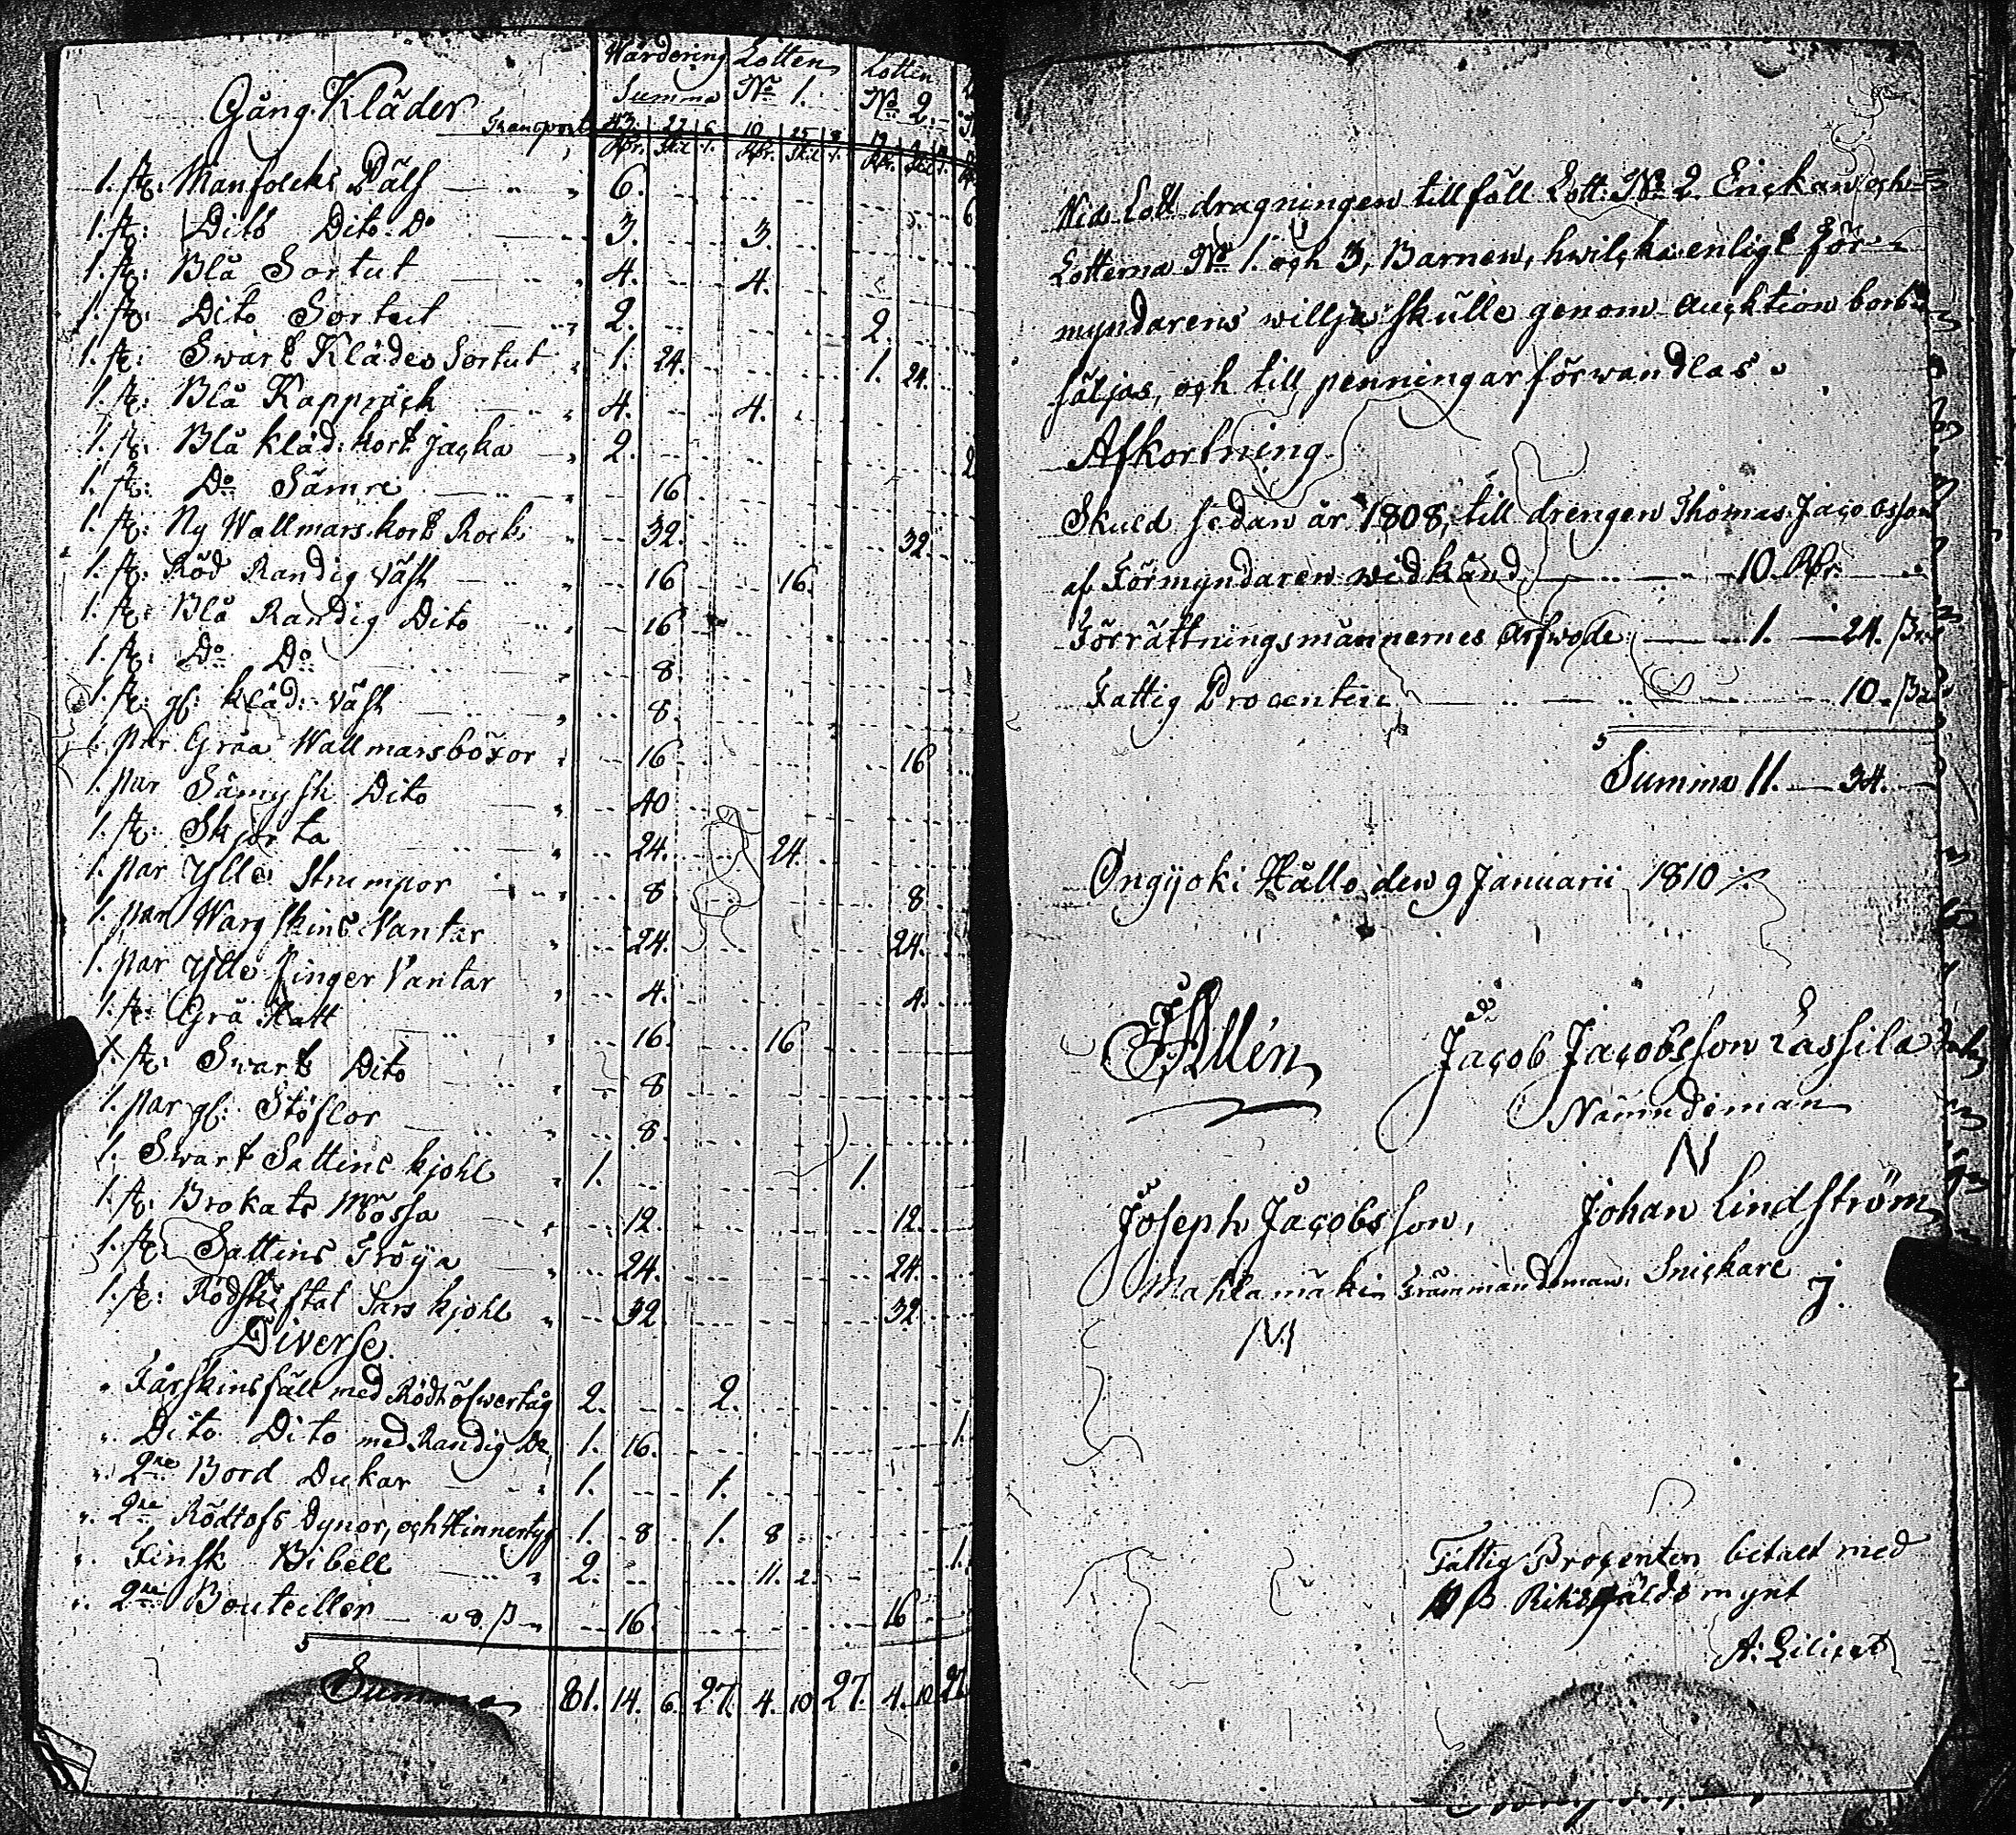 Wärdering Lotten Lotten
Gång Kläder Summa No 1. No 2.
Transport 43. 22 6 10 25 8
Rdr. Skil r. Rdr. Skil r. Rdr. Skil r.
1. st: Manfolcks Päls 6. 6
1. st: Dito Dito Do 3. 3.
1. st: Blå Sortut 4. 4.
1. st: Dito Sortut 2. 2.
1. st: Swart Klädes Sortut 1. 24. 1. 24.
1. st: Blå Kapprock 4. 4.
1. st: Blå kläd: kort jacka 2. 2
1. st: Do Sämre 16
1. st: Ny Wallmars kort Rock 32. 32.
1. st: Röd Randig väst 16 16.
1. st: Blå Randig Dito 16
1. st: Do Do 8.
1. st: gl: kläd: väst 8.
1. par Gråa Wallmarsböxor 16 16
1. par Sämysk Dito 40
1. st: Skjorta 24. 24.
1. par Ylle Strumpor 8 8
1. par Warg skins Vantar 24. 24.
1. par Ylle finger Vantar 4. 4.
1. st: Grå Hatt 16. 16
1. st: Swart Dito 8
1. par gl: Stöflor 8.
1. Swart Sattins kjohl 1. 1.
1. st: Brokats Mössa 12. 12.
1. st: Sattins Tröya 24. 24.
1. st: Rödskiftat Sars kjohl 32. 32.
Diverse.
Fårskinsfäll med Rödt öfwertåg 2. 2.
Dito Dito med Randig Do 1. 16. 1.
2ne Bord Dukar 1. 1.
2ne Rödtofs Dynor, och Hinnertyg 1. 8 1. 8
Finsk Bibell 2. 11. 2. 1.
2ne Bouteiller a 8. ß 16 16
Summa 81. 14. 6. 27. 4. 10 27. 4. 10 27
Wid Lott dragningen tillföll Lott: No 2. Enckan och
Lotterna No 1. och 3, Barnen, hwilcka enligt för-
myndarens willja skulle genom aucktion bort-
säljas, och till penningar förwandlas.
Afkortning.
Skuld sedan år 1808, till drengen Thomas Jacobsson
af Förmyndaren widkänd 10. Rdr.
Förrättningsmännernes Arfwode 1. 24. ß
Fattig Procenten 10. ß
Summa 11. 34.
Ongijoki Hållo den 9 Januarii 1810
Jacob Jacobsson Lassila
Nämndeman
N
Joseph Jacobsson, Johan Lindström
Mahlamäki Främmandeman. Snickare
J.
M
Fattig Procenten betalt med
10 ß Riksgälds mynt